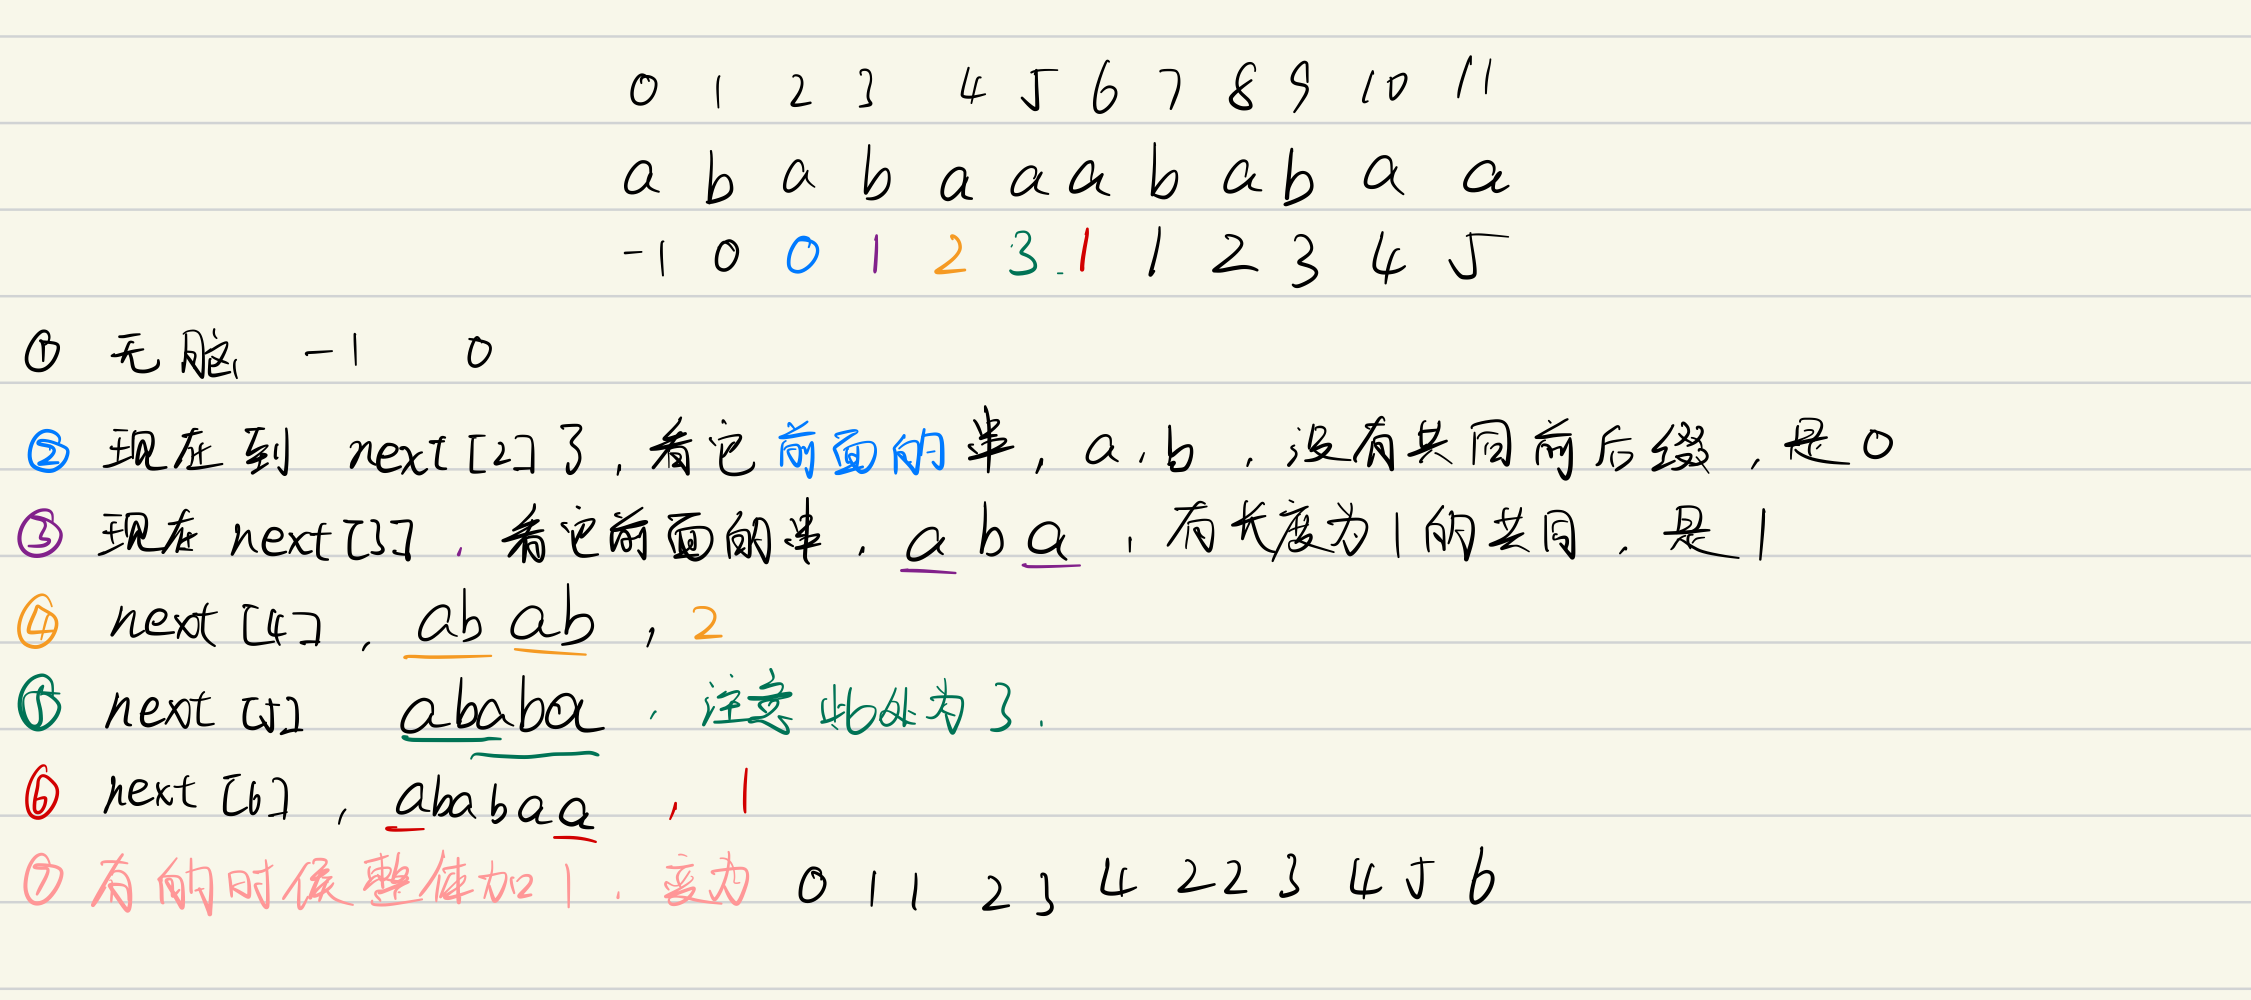 0 1 2 3 4 5 6 7 8 9 10 11
a b a b a a a b a b a a
-1 0 0 1 2 3 1 1 2 3 4 5
① 无脑 -1 0
② 现在到 next[2]了,看它前面的串,a,b,没有共同前后缀,是0
③ 现在next[3],看它前面的串,aba,有长度为1的共同,是1
④ next[4],abab,2
⑤ next[5] ababa,注意此处为3.
⑥ next[6],ababaa,1
⑦ 有的时候整体加1,变为 0 1 1 2 3 4 2 2 3 4 5 6